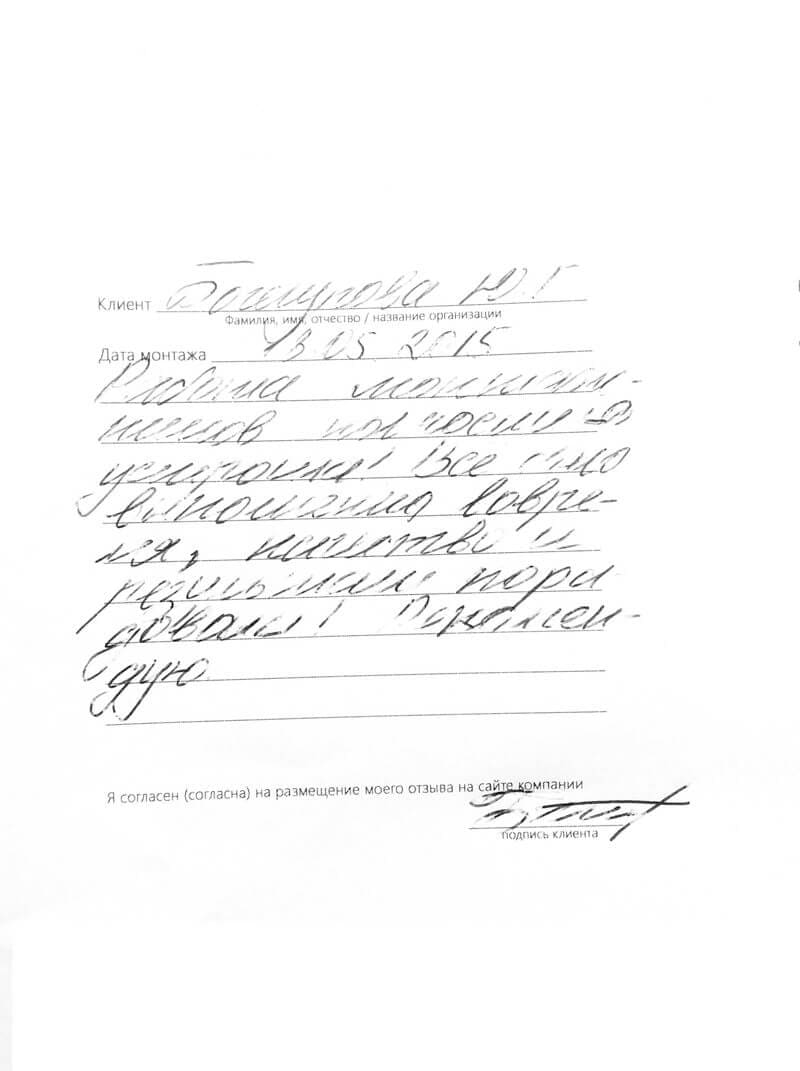 Клиент Ю.Г
Фамилия, имя, отчество / название организации
Дата монтажа 13.05.2015
Работа монтаж-
ников
устроила! Все было
выполнено вовре-
мя, качество и
результат пора-
довали! Рекомен-
дую
Я согласен (согласна) на размещение моего отзыва на сайте компании
подпись клиента